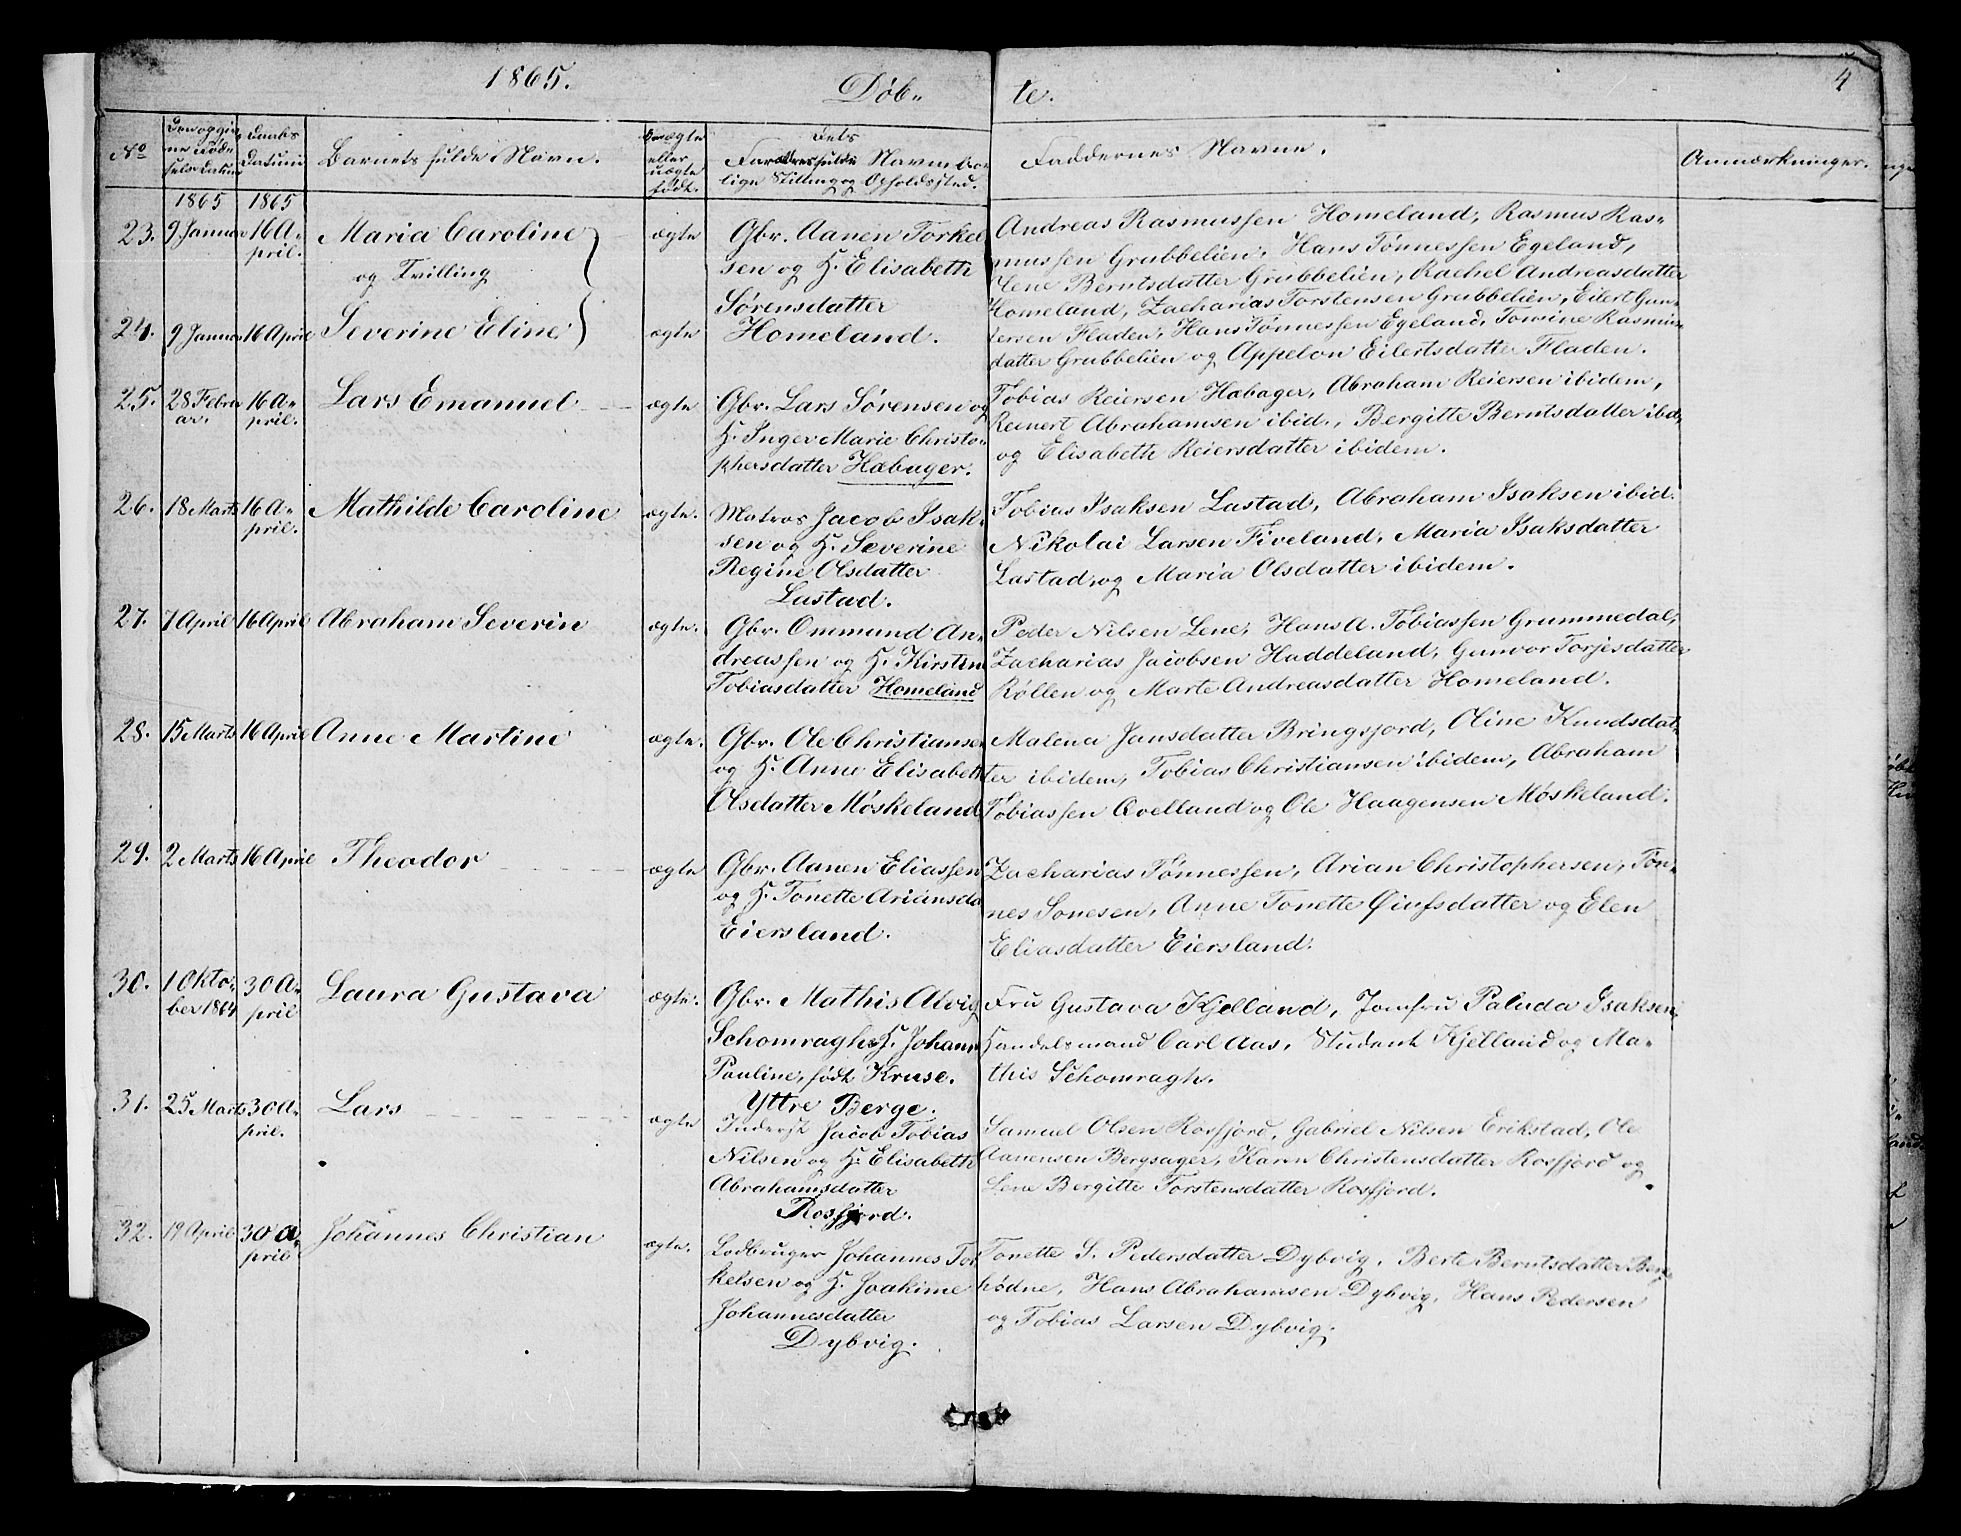 1865. Døb- te. 4
No Den opgivne Fødselsdatum Daabs Datum Barnets fulde Navn. Om ægte eller uægte født. Forældres fulde Navn borlige Stilling og Opholdssted. Faddernes Navne. Anmærkninger.
1865 1865
23. 9 Januar 16 April. Maria Caroline ægte Gbr. Aanen Torkel-
og Tvilling sen og H. Elisabeth
Sørensdatter
24. 9 Januar 16 April Severine Eline ægte Homeland.
Andreas Rasmussen Homeland, Rasmus Ras-
mussen Grubbelien, Hans Tønnessen Egeland,
Olene Berntsdatter Grubbelien, Rachel Andreasdatter
Homeland, Zacharias Torstensen Grubbelien, Eilert Gun-
dersen Fladen, Hans Tønnessen Egeland, Towine Rasmus-
datter Grubbelien og Appelon Eilertsdatter Fladen.
25. 28 Februar. 16 April. Lars Emanuel ægte Gbr. Lars Sørensen og
H. Inger Marie Christo-
phersdatter Hæbager.
Tobias Reiersen Hæbager, Abraham Reiersen ibidem,
Reinert Abrahamsen ibid., Bergitte Berntsdatter ibid.
og Elisabeth Reiersdatter ibidem.
26. 18 Marts 16 April. Mathilde Caroline ægte. Matros Jacob Isak-
sen og H. Severine
Regine Olsdatter
Lastad.
Tobias Isaksen Lastad, Abraham Isaksen ibid.
Nikolai Larsen Fiveland, Maria Isaksdatter
Lastad, og Maria Olsdatter ibidem.
27. 7 April 16 April Abraham Severin ægte. Gbr. Ommund An-
dreassen og H. Kirsten
Tobiasdatter Homeland
Peder Nilsen Lene, Hans A. Tobiassen Grummedal,
Zacharias Jacobsen Haddeland, Gunvor Torjesdatter
Røllen og Marte Andreasdatter Homeland.
28. 15 Marts 16 April Anne Martine ægte. Gbr. Ole Christiansen
og H. Anne Elisabeth
Olsdatter Møskeland
Malena Jansdatter Bringsjord, Oline Knudsdat-
ter ibidem, Tobias Christiansen ibidem, Abraham
Tobiassen Qvelland og Ole Haagensen Møskeland.
29. 2 Marts 16 April Theodor ægte Gbr. Aanen Eliassen
og H. Tonette Ariansda
Eiersland.
Zacharias Tønnessen, Arian Christophersen, Tøn-
nes Sonesen, Anne Tonette datter og Elen
Eliasdatter Eiersland.
30. 1 Oktober 1864 30 April Laura Gustava ægte. Gbr. Mathis Alvig
Schomragh & H. Johanne
Pauline, født Kruse.
Yttre Berge.
Fru Gustava Kjelland, Jomfru Paluda Isaksen,
Handelsmand Carl Aas, Student Kjelland og Ma-
this Schomragh.
31. 25 Marts 30 April. Lars ægte Inderst Jacob Tobias
Nilsen og H. Elisabeth
Abrahamsdatter
Rosfjord.
Samuel Olsen Rosfjord, Gabriel Nilsen Erikstad, Ole
Aanensen Bergsager, Karen Christensdatter Rosfjord og
Lene Bergitte Torstensdatter Rosfjord.
32. 19 April 30 April Johannes Christian ægte. Lodbruger Johannes Tor-
kelsen og H. Joakime
Johannesdatter
Dybvig.
Tonette S. Pedersdatter Dybvig, Berte Berntsdatter Ben-
hødne, Hans Abrahamsen Dybvig, Hans Pedersen
og Tobias Larsen Dybvig.